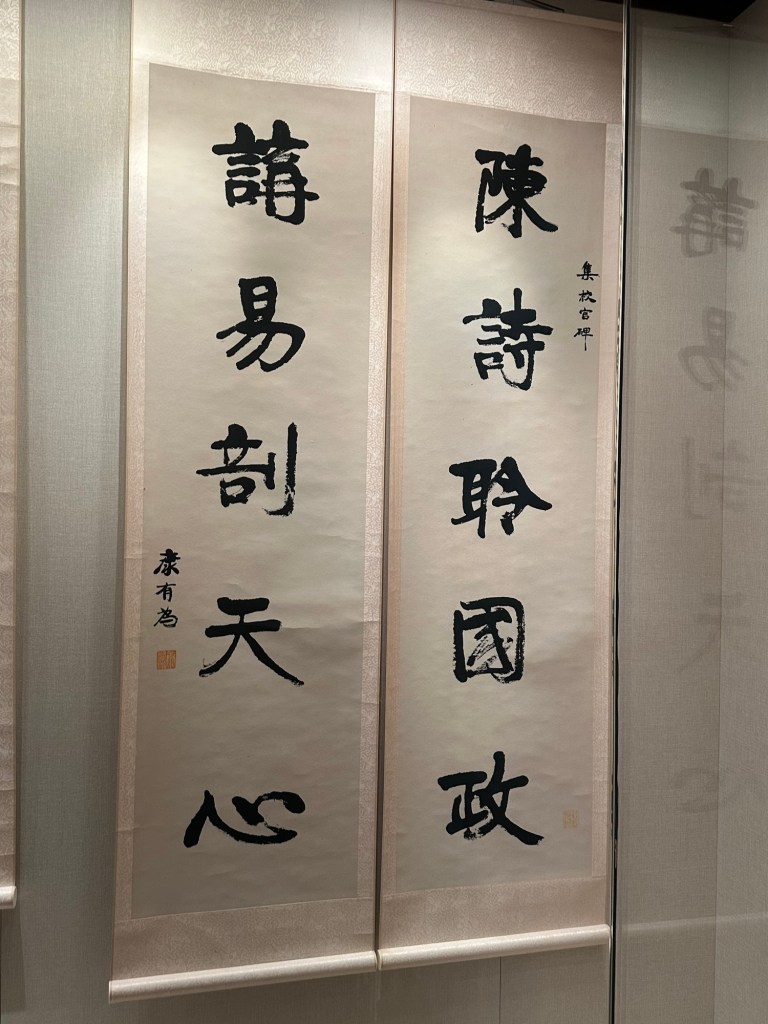 集校官碑
陳詩聆國政
講易剖天心
康有為